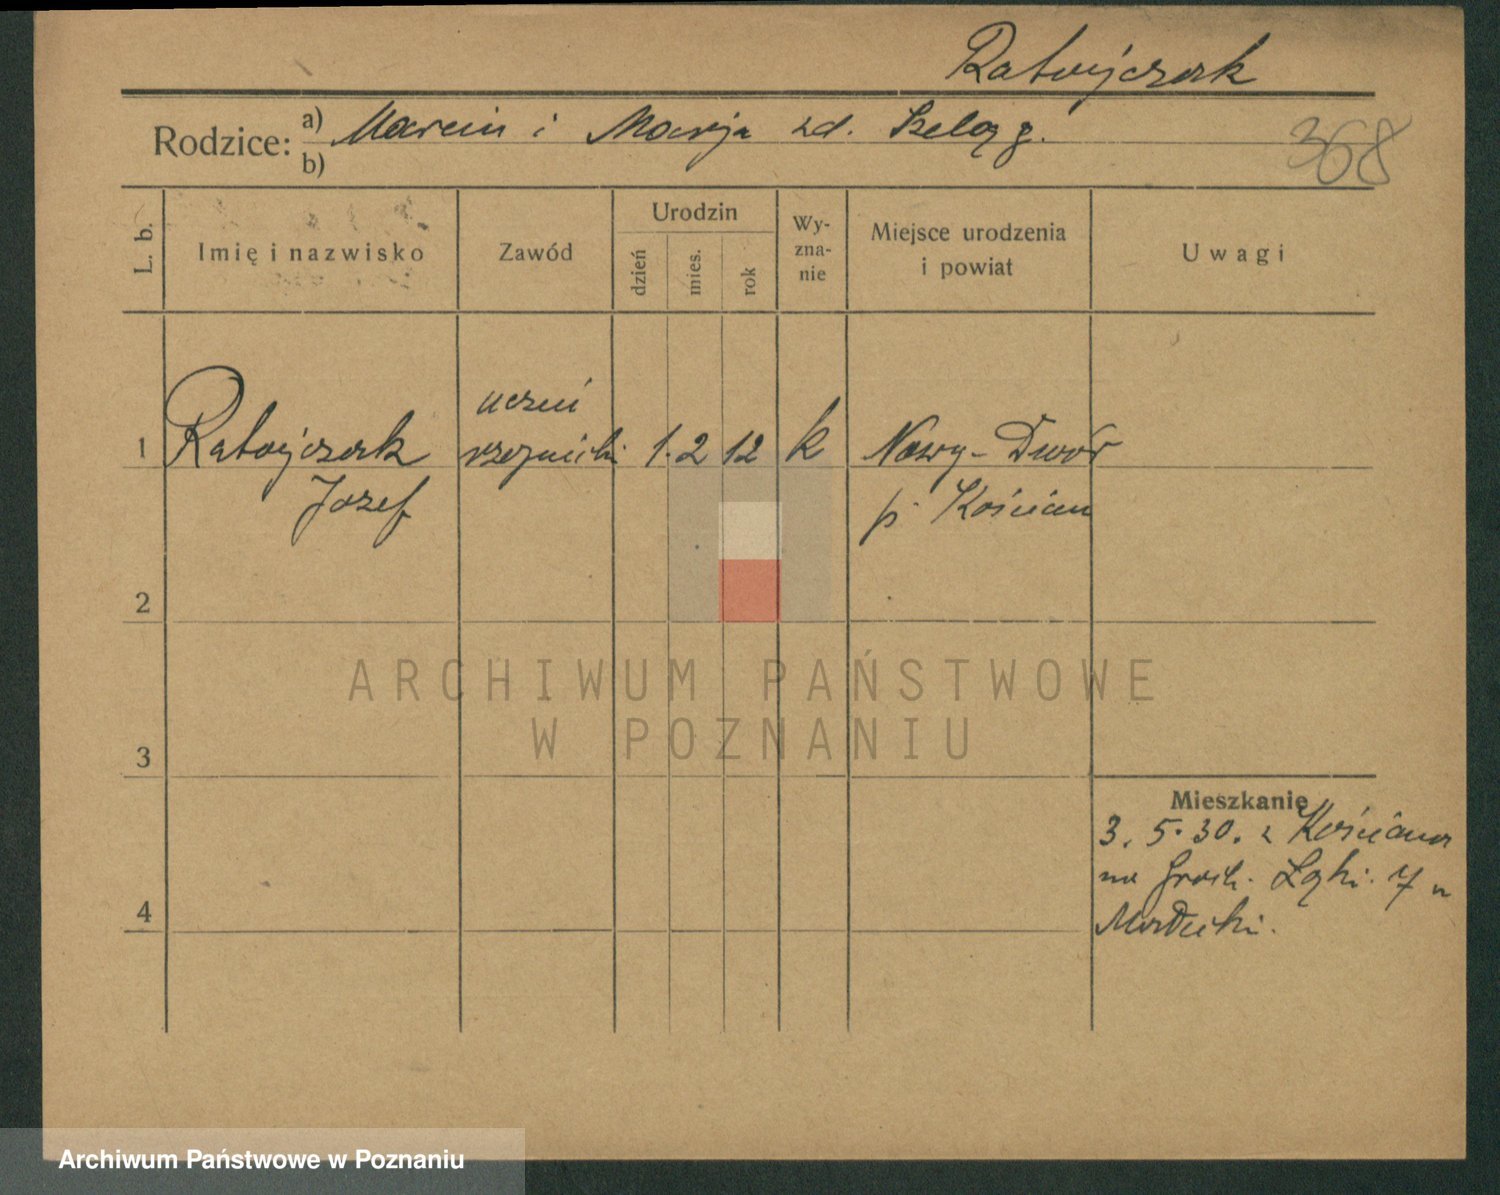 Ratajczak
Rodzice: a) Marcin i Marja zd. Szeląg.
b)
368
L. b.
Imię i nazwisko
Zawód
Urodzin
dzień
mies.
rok
Wy-
zna-
nie
Miejsce urodzenia
i powiat
Uwagi
uczeń
1 Ratajczak rzeźnicki 1. 2 12 k Nowy-Dwór
Józef p. Kościan
2
ARCHIWUM PAŃSTWOWE
W POZNANIU
3
Mieszkanie
3. 5. 30. z Kościana
na Grobli. Łąki. 7 u
4
Archiwum Państwowe w Poznaniu